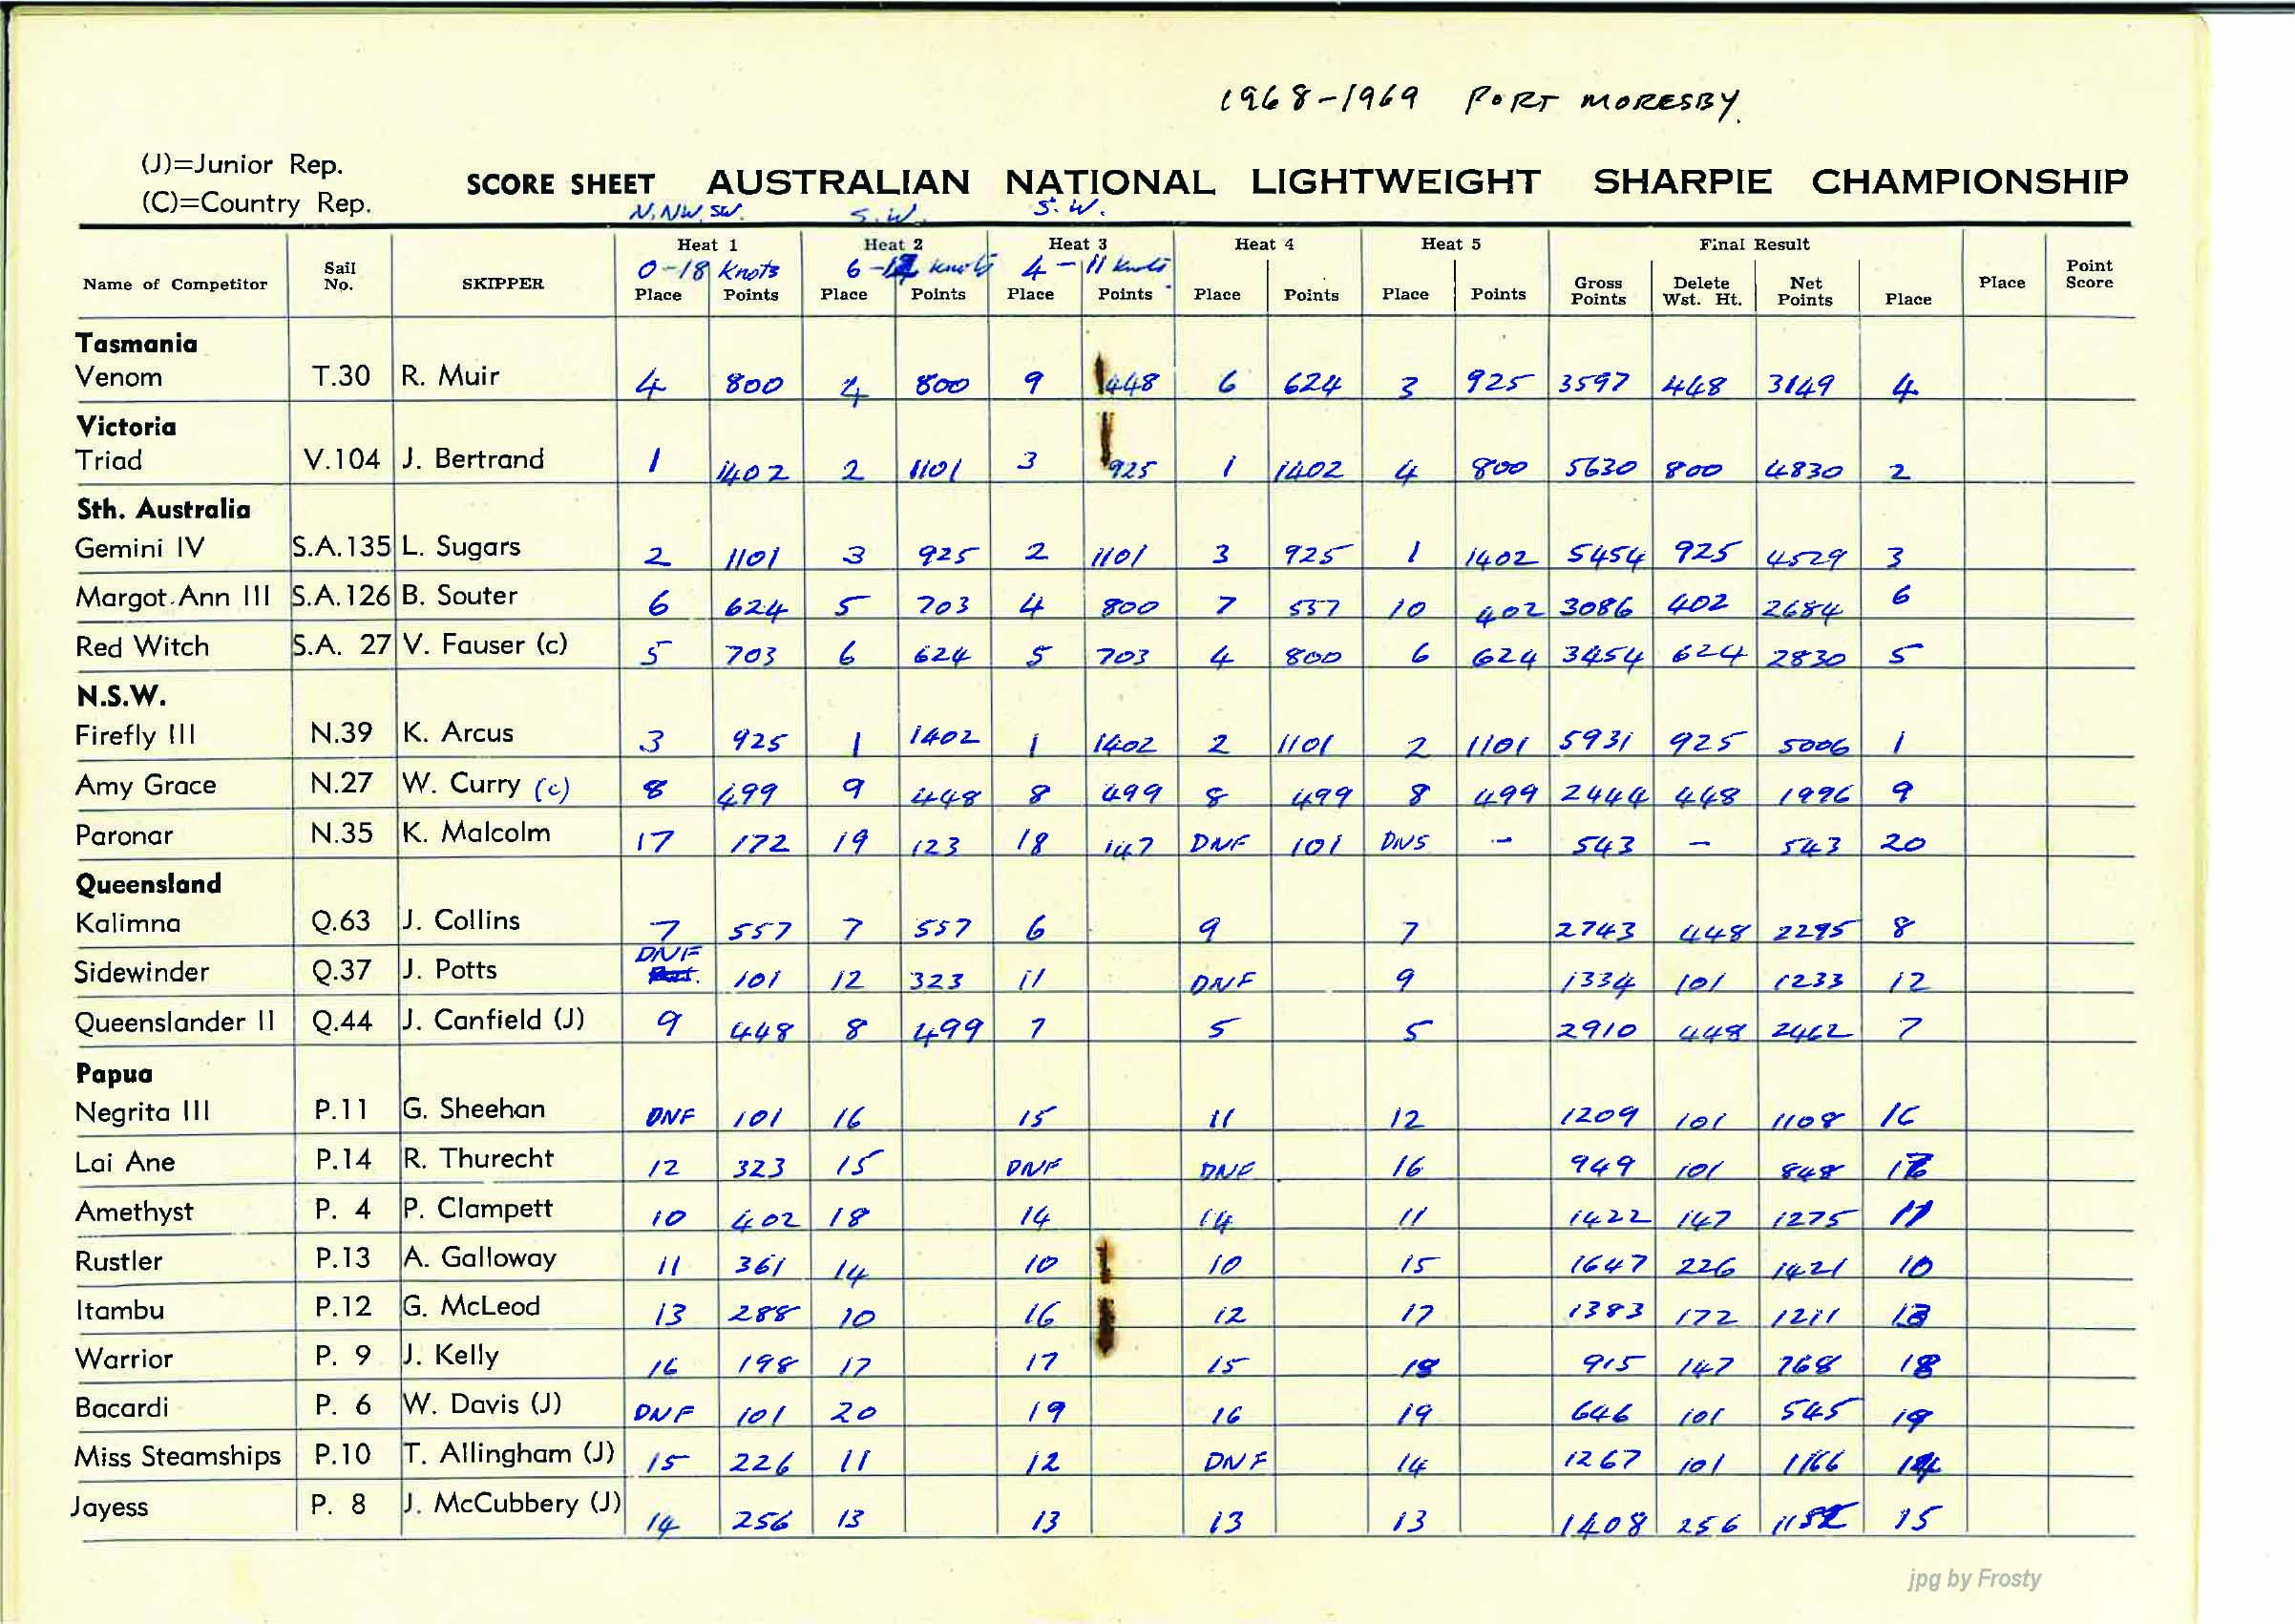 1968-1969 PORT MORESBY.
(J)=Junior Rep.
(C)=Country Rep.
SCORE SHEET AUSTRALIAN NATIONAL LIGHTWEIGHT SHARPIE CHAMPIONSHIP
N, NW, SW. S.W. S.W.
Heat 1 Heat 2 Heat 3 Heat 4 Heat 5 Final Result
0-18 Knots 6- knots 4-11 knots
Name of Competitor Sail No. SKIPPER Place Points Place Points Place Points Place Points Place Points Gross Points Delete Wst. Ht. Net Points Place Place Point Score
Tasmania
Venom T.30 R. Muir 4 800 4 800 9 448 6 624 3 925 3597 448 3149 4
Victoria
Triad V.104 J. Bertrand 1 1402 2 1101 3 925 1 1402 4 800 5630 800 4830 2
Sth. Australia
Gemini IV S.A.135 L. Sugars 2 1101 3 925 2 1101 3 925 1 1402 5454 925 4529 3
Margot.Ann III S.A.126 B. Souter 6 624 5 703 4 800 7 557 10 402 3086 402 2684 6
Red Witch S.A. 27 V. Fauser (c) 5 703 6 624 5 703 4 800 6 624 3454 624 2830 5
N.S.W.
Firefly III N.39 K. Arcus 3 925 1 1402 1 1402 2 1101 2 1101 5931 925 5006 1
Amy Grace N.27 W. Curry (c) 8 499 9 448 8 499 8 499 8 499 2444 448 1996 9
Paronar N.35 K. Malcolm 17 172 19 123 18 147 DNF 101 DNS - 543 - 543 20
Queensland
Kalimna Q.63 J. Collins 7 557 7 557 6 9 7 2743 448 2295 8
Sidewinder Q.37 J. Potts DNF 101 12 323 11 DNF 9 1334 101 1233 12
Queenslander II Q.44 J. Canfield (J) 9 448 8 499 7 5 5 2910 448 2462 7
Papua
Negrita III P.11 G. Sheehan DNF 101 16 15 11 12 1209 101 1108 16
Lai Ane P.14 R. Thurecht 12 323 15 DNF DNF 16 949 101 848
Amethyst P. 4 P. Clampett 10 402 18 14 14 11 1422 147 1275 11
Rustler P.13 A. Galloway 11 361 14 10 10 15 1647 226 1421 10
Itambu P.12 G. McLeod 13 288 10 16 12 17 1383 172 1211 13
Warrior P. 9 J. Kelly 16 198 17 17 15 18 915 147 768 18
Bacardi P. 6 W. Davis (J) DNF 101 20 19 16 19 646 101 545 19
Miss Steamships P.10 T. Allingham (J) 15 226 11 12 DNF 14 1267 101 1166 14
Jayess P. 8 J. McCubbery (J) 14 256 13 13 13 13 1408 256 1152 15
jpg by Frosty